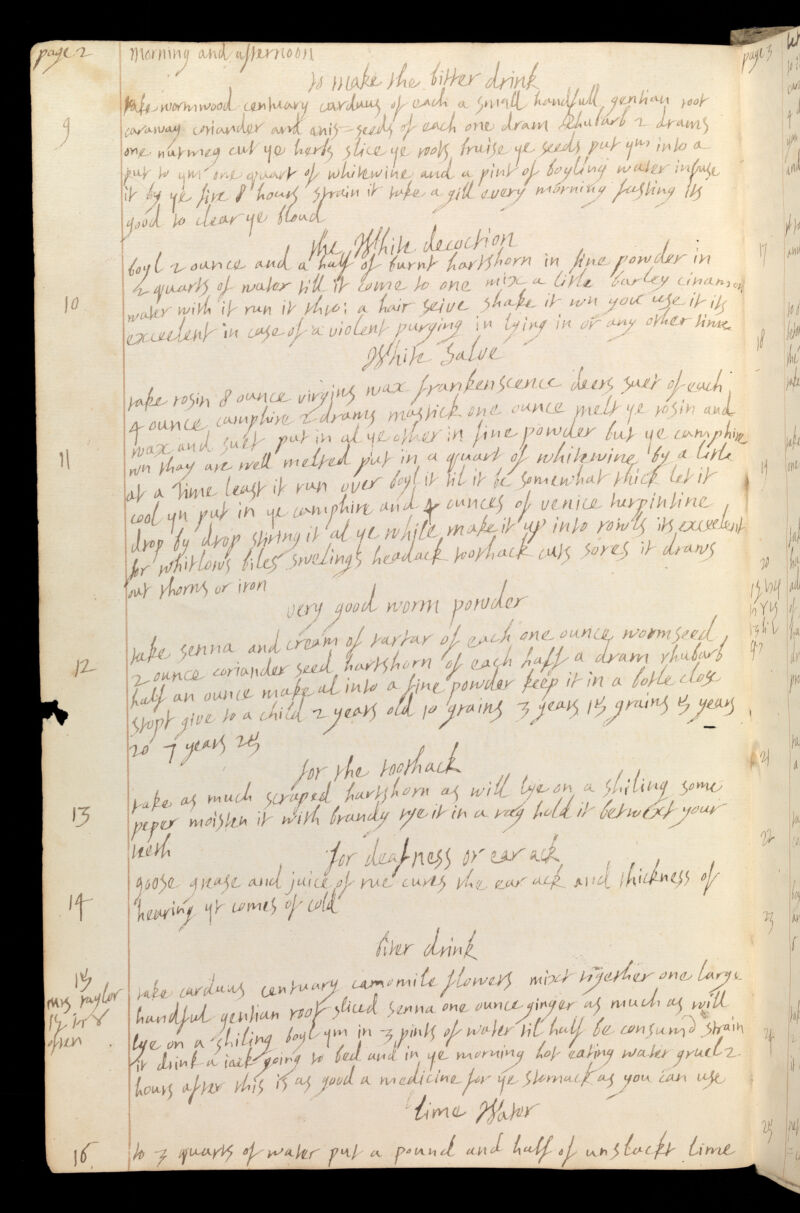 page 2
morning and afternoon
to make the bitter drink
9
take wormwood centuary carduus of each a small handfull gentian root
caraway coriander and anis=seeds of each one dram Rhubarb 2 drams
one nutmeg cut ye herbs slice ye roots bruise ye seeds put ym into a
put to ym one quart of whitewine and a pint of boyling water infuse
it by ye fire 8 hours strain it take a gill every morning fasting its
good to clear ye bloud
the White decoction
10
boyl 2 ounce and a half of burnt hartshorn in fine powder in
2 quarts of water till it come to one mix a litle barley cinamon
water with it run it thro: a hair seive shake it wn you use it its
excelent in case of a violent purging in lying in or any other time
White Salve
11
take rosin 8 ounce virgins wax frankenscence deers suet of each
4 ounce camphire 2 drams mastick one ounce melt ye rosin and
wax and suet put in al ye other in fine powder but ye camphire
wn thay are well melted put in a quart of whitewine by a litle
at a Time least it run over boyl it til it be somewhat thick let it
cool yn put in ye camphire and 4 ounces of venice turpintine
drop by drop stiring it al ye while make it up into rowls its excelent
for whitlows biles swelings headack toothack cuts sores it draws
out thorns or iron
very good worm powder
12
take senna and cream of tartar of each one ounce wormseed
2 ounce coriander seed hartshorn of each half a dram rhubarb
half an ounce make al into a fine powder keep it in a botle close
stopt give to a child 2 years old 10 grains 3 years 15 grains 5 years
20 7 years 25
for the toothack
13
take as much scraped hartshorn as will lye on a shiling some
peper moisten it with brandy tye it in a rag hold it betwext your
teeth
for deafness or ear ack
14
goose grease and juice of rue cures the ear ack and thickness of
hearing yt comes of cold
biter drink
15
mrs taylor
often
take carduus centuary camomile flowers mixt together one large
handful gentian root sliced senna one ounce ginger as much as will
lye on a shiling boyl ym in 3 pints of water til half be consum'd strain
it drink a jack going to bed and in ye morning hot eating water gruel 2
hours after this is as good a medicine for ye stomack as you can use
lime Water
16
to 3 quarts of water put a pound and half of unslackt lime
page 3
17
18
19
20
21
22
23
24
25